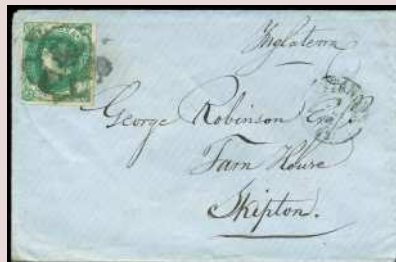 Inglaterra
George Robinson Esq.
Farn House
Skipton.